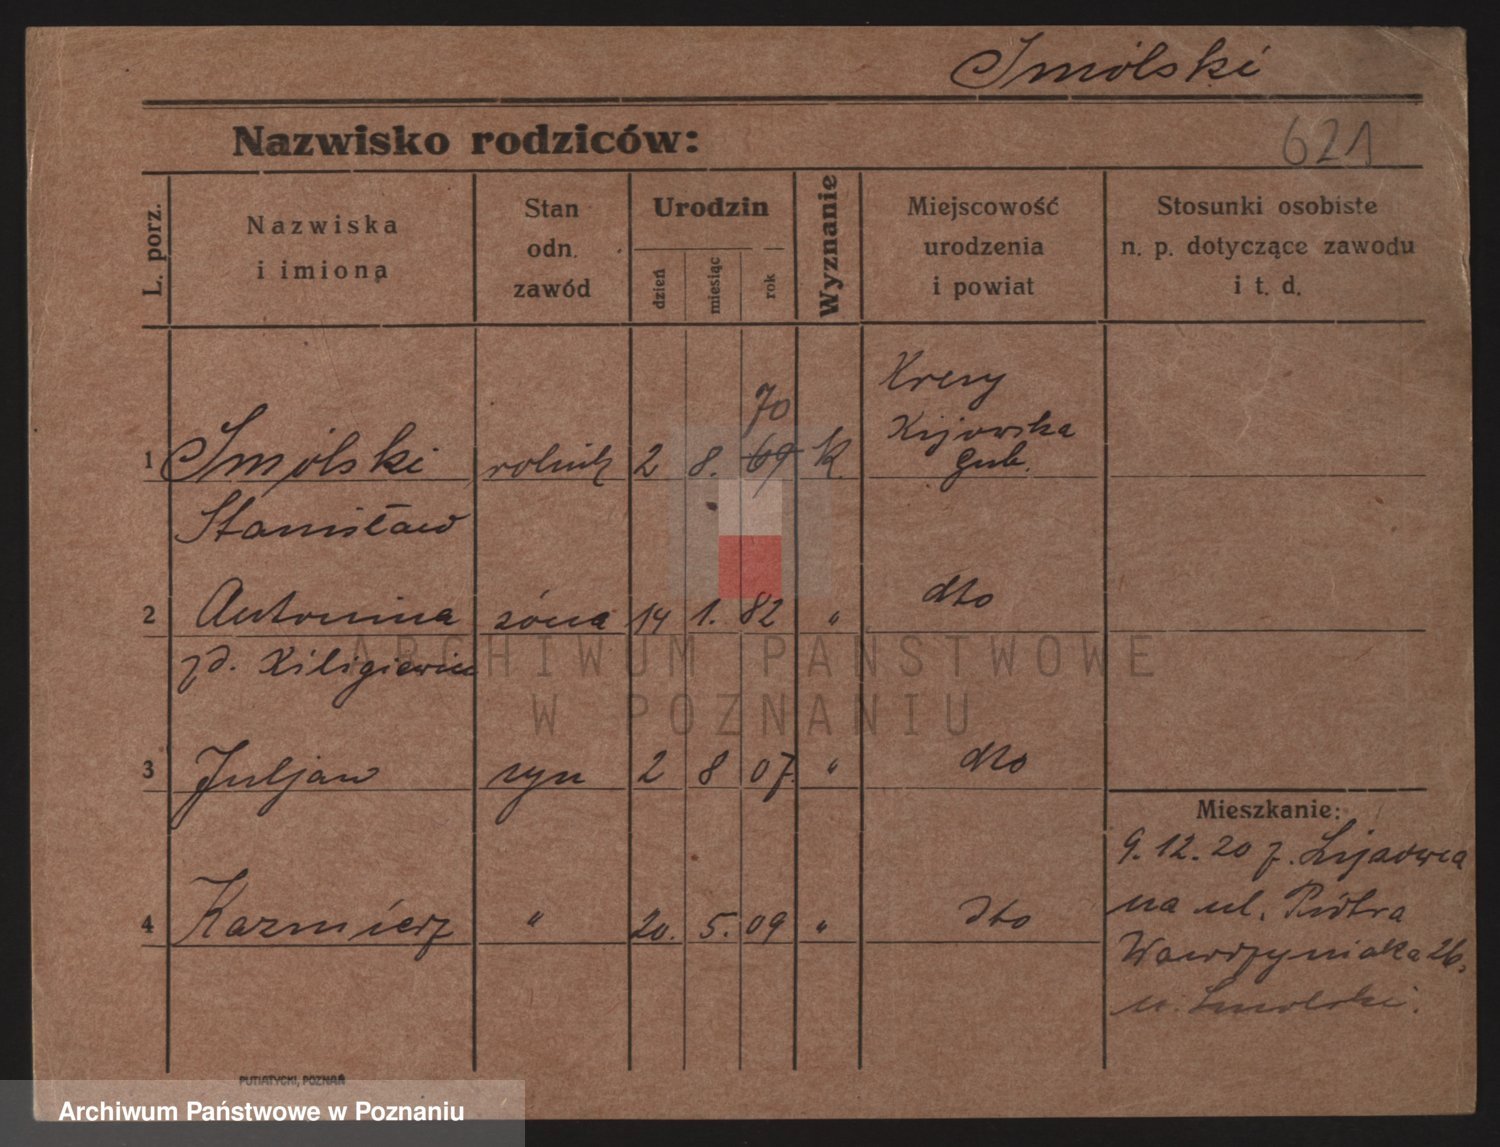 Smólski
Nazwisko rodziców:
621
L. porz.
Nazwiska
i imiona
Stan
odn.
zawód
Urodzin
dzień
miesiąc
rok
Wyznanie
Miejscowość
urodzenia
i powiat
Stosunki osobiste
n. p. dotyczące zawodu
i t. d.
1 Smólski rolnik 2 8. 69 70 K. Kresy
Kijowska
gub.
Stanisław
2 Antonina żona 14 1. 82 " dto
ARCHIWUM PAŃSTWOWE
W POZNANIU
3 Juljan syn 2 8 07. " dto
Mieszkanie:
9.12.20 z
na ul. Piotra
Wawrzyniaka 26,
u. Smolski.
4 Kazmierz " 20. 5. 09 " dto
PUTIATYCKI, POZNAŃ
Archiwum Państwowe w Poznaniu